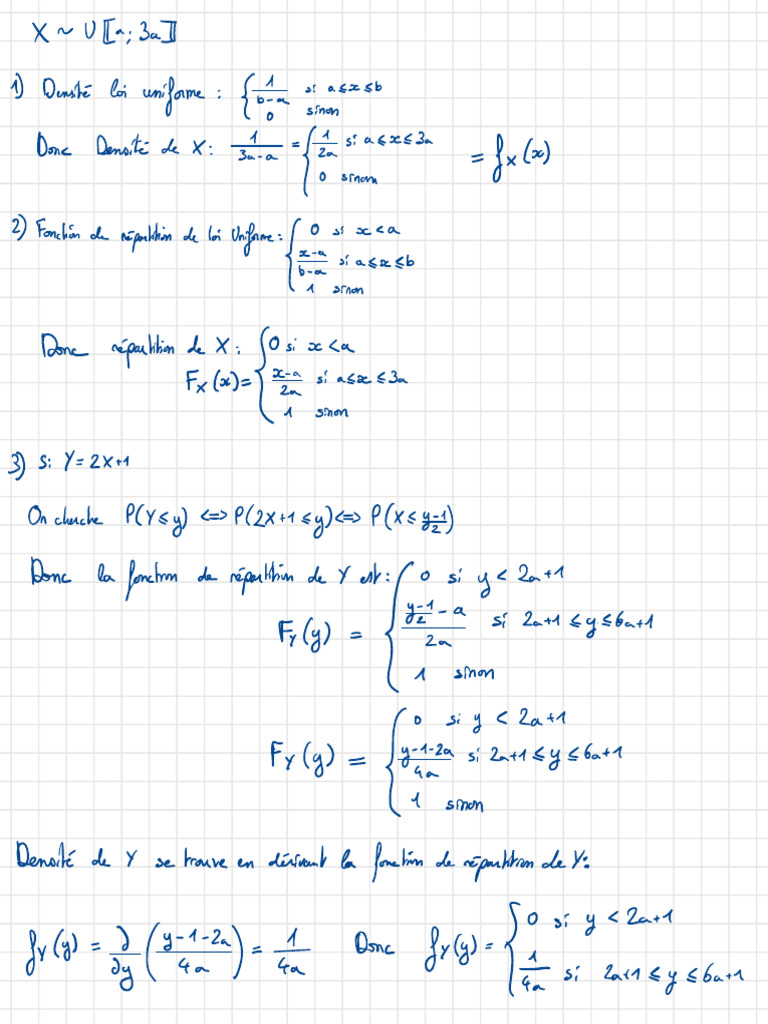 X ~ U⟦a; 3a⟧
1) Densité loi uniforme : { 1/(b-a) si a ≤ x ≤ b
0 sinon
Donc Densité de X : 1/(3a-a) = { 1/(2a) si a ≤ x ≤ 3a = fX(x)
0 sinon
2) Fonction de répartition de loi Uniforme : { 0 si x < a
(x-a)/(b-a) si a ≤ x ≤ b
1 sinon
Donc répartition de X : { 0 si x < a
FX(x) = (x-a)/(2a) si a ≤ x ≤ 3a
1 sinon
3) Si Y = 2X+1
On cherche P(Y ≤ y) <=> P(2X+1 ≤ y) <=> P(X ≤ (y-1)/2)
Donc la fonction de répartition de Y est : { 0 si y < 2a+1
FY(y) = ((y-1)/2 - a)/(2a) si 2a+1 ≤ y ≤ 6a+1
1 sinon
{ 0 si y < 2a+1
FY(y) = (y-1-2a)/(4a) si 2a+1 ≤ y ≤ 6a+1
1 sinon
Densité de Y se trouve en dérivant la fonction de répartition de Y :
fY(y) = ∂/∂y ((y-1-2a)/(4a)) = 1/(4a) Donc fY(y) = { 0 si y < 2a+1
1/(4a) si 2a+1 ≤ y ≤ 6a+1